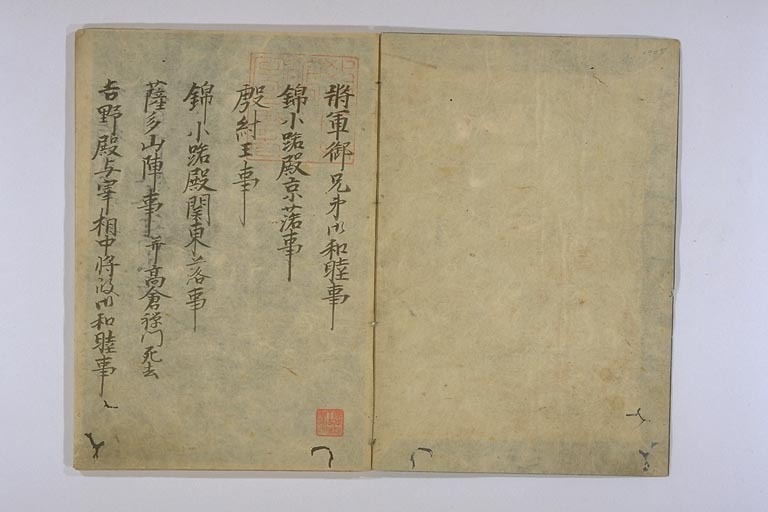 將軍御兄弟御和睦事
錦小路殿京落事
殷紂王事
錦小路殿関東落事
薩多山陣事 并高倉禅門死去
吉野殿与宰相中将殿御和睦事